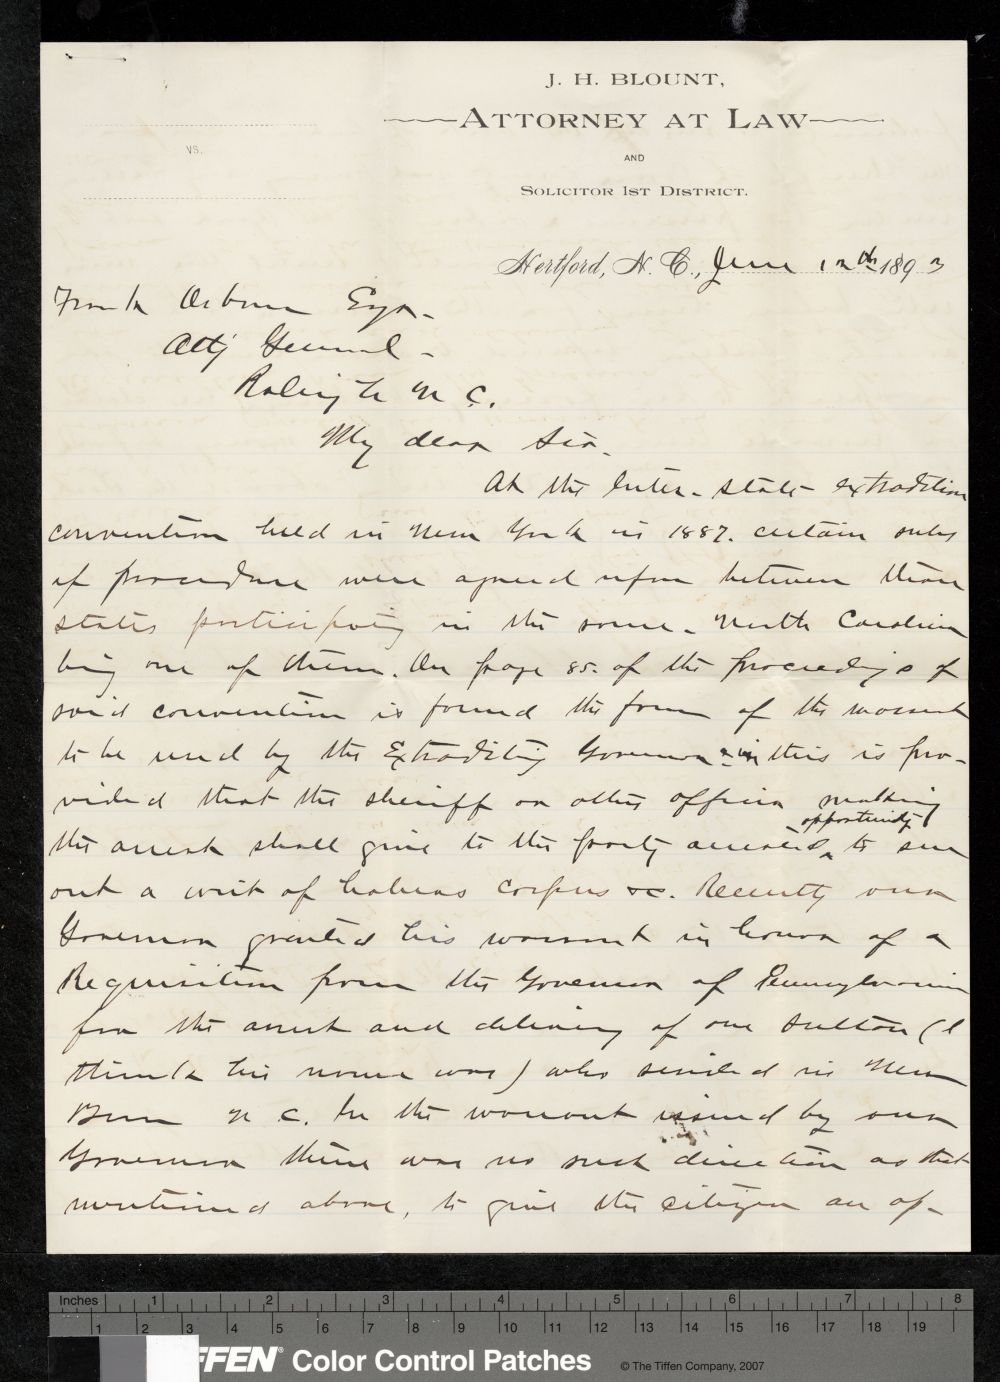 J. H. BLOUNT,
ATTORNEY AT LAW
VS.
AND
SOLICITOR 1ST DISTRICT.
Hertford, N. C., June 12th 1893
Frank Osborne Esqr.
Atty General -
Raleigh N C.
My dear Sir.
At the Inter-state extradition
convention held in New York in 1887. certain rules
of procedure were agreed upon between those
states participating in the same - North Carolina
being one of them. On page 85. of the proceedings of
said convention is found the form of the warrant
to be used by the Extraditing Governor - in this is pro-
vided that the sheriff or other officer making
opportunity
the arrest shall give to the party arrested ^ to sue
out a writ of habeas corpus &c. Recently our
Governor granted his warrant in honor of a
Requisition from the Governor of Pennsylvania
for the arrest and delivery of one Sutton (I
think his name was) who resided in New
Bern N C. In the warrant issued by our
Governor there was no such direction as that
mentioned above, to give the citizen an op-
Inches 1 2 3 4 5 6 7 8
1 2 3 4 5 6 7 8 9 10 11 12 13 14 15 16 17 18 19
FFEN® Color Control Patches © The Tiffen Company, 2007